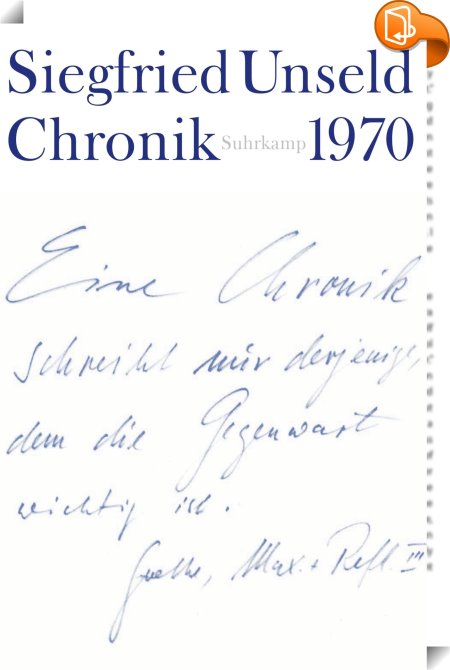 Siegfried Unseld
Chronik Suhrkamp 1970
Eine Chronik
schreibt nur derjenige,
dem die Gegenwart
wichtig ist.
Goethe, Max. + Refl. III